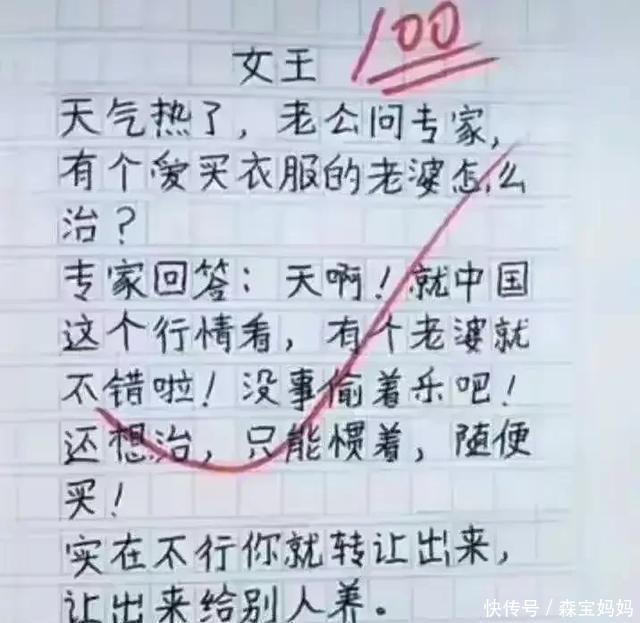 女王 100
天气热了，老公问专家，
有个爱买衣服的老婆怎么
治？
专家回答：天啊！就中国
这个行情看，有个老婆就
不错啦！没事偷着乐吧！
还想治，只能惯着，随便
买！
实在不行你就转让出来，
让出来给别人养。
快传号／森宝妈妈